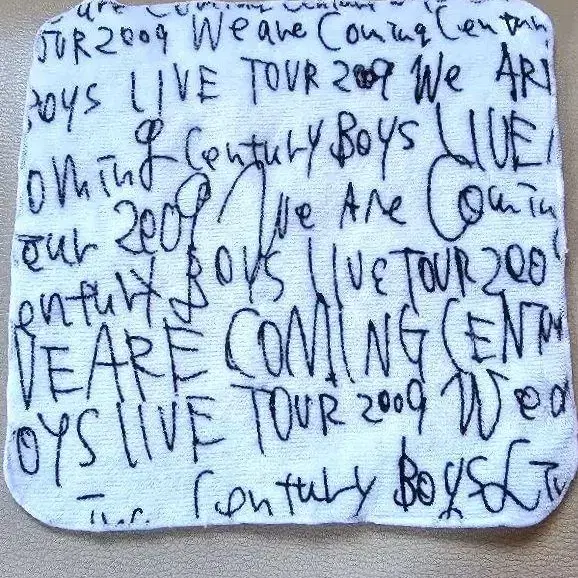 are Coming Century
TOUR 2009 We are Coming Centur
BOYS LIVE TOUR 2009 We ARE
oming Century BOYS LIVE
our 2009 We Are Comin
entury BOYS LIVE TOUR 200
WE ARE COMING CENTU
OYS LIVE TOUR 2009 We a
Century BOYS Li